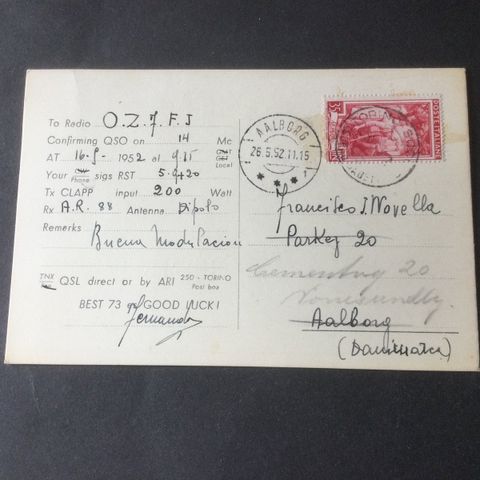 To Radio O.Z.7.F.J
Confirming QSO on 14 Mc
AT 16-5-1952 at 9.15 GMT Local
Your CW Phone sigs RST 5-9+20
Tx CLAPP input 200 Watt
Rx A.R. 88 Antenna Dipolo
Remarks Buena Modulacion
TNX QSL direct or by ARI 250 - TORINO
Post box
BEST 73 GOOD LUCK!
Fernando
AALBORG
26.5.52.11.15
POSTE ITALIANE
35
TORINO
Francisco J. Novella
Parkej 20
Cementvej 20
Nørresundby
Aalborg
(Danimarca)